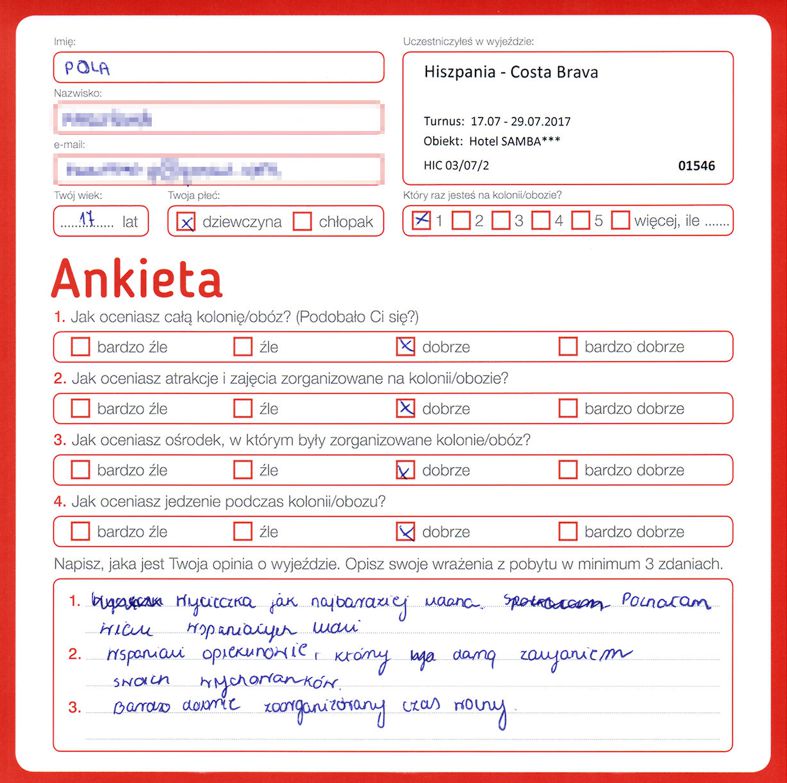 Imię:
POLA
Nazwisko:
e-mail:
Twój wiek:
17 lat
Twoja płeć:
dziewczyna chłopak
Uczestniczyłeś w wyjeździe:
Hiszpania - Costa Brava
Turnus: 17.07 - 29.07.2017
Obiekt: Hotel SAMBA***
HIC 03/07/2 01546
Który raz jesteś na kolonii/obozie?
1 2 3 4 5 więcej, ile .......
Ankieta
1. Jak oceniasz całą kolonię/obóz? (Podobało Ci się?)
bardzo źle źle dobrze bardzo dobrze
2. Jak oceniasz atrakcje i zajęcia zorganizowane na kolonii/obozie?
bardzo źle źle dobrze bardzo dobrze
3. Jak oceniasz ośrodek, w którym były zorganizowane kolonie/obóz?
bardzo źle źle dobrze bardzo dobrze
4. Jak oceniasz jedzenie podczas kolonii/obozu?
bardzo źle źle dobrze bardzo dobrze
Napisz, jaka jest Twoja opinia o wyjeździe. Opisz swoje wrażenia z pobytu w minimum 3 zdaniach.
1. Wycieczka jak najbardziej udana. Poznałam
wielu wspaniałych ludzi
2. Wspaniali opiekunowie, którzy damą zaufaniem
swoich wychowanków.
3. Bardzo dobrze zoorganizowany czas wolny.